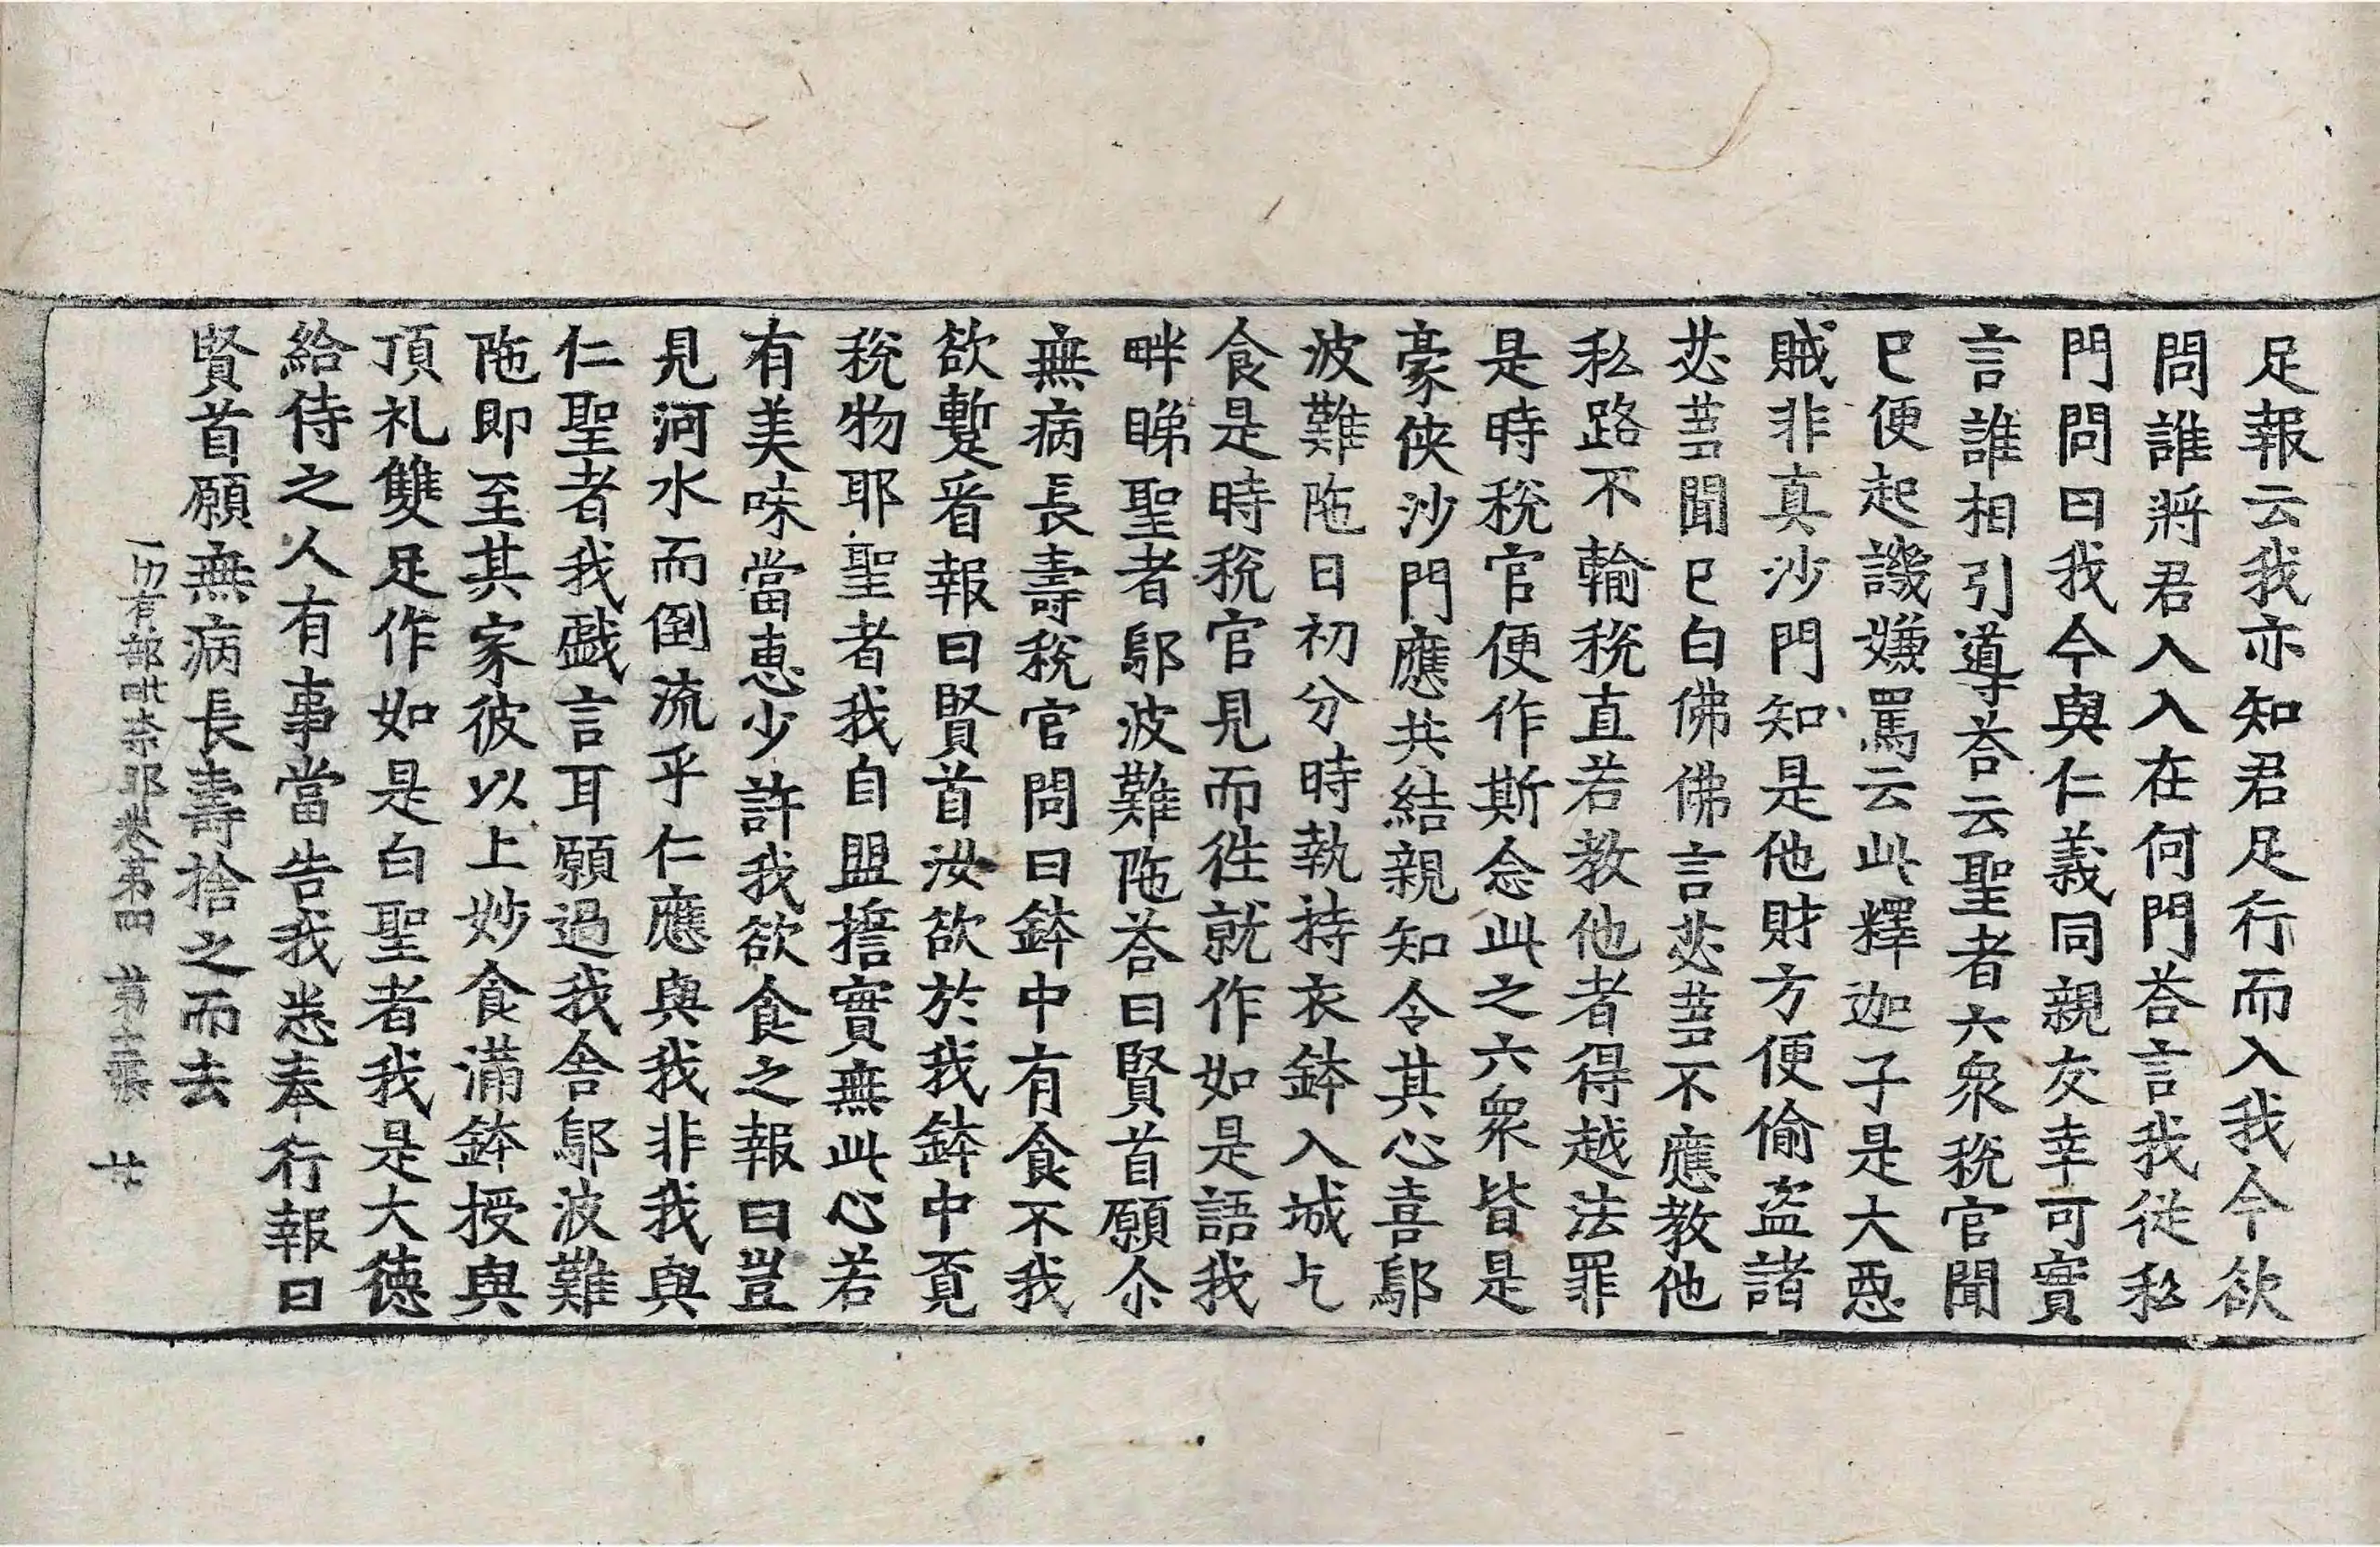 足報云我亦知君足行而入我今欲
問誰將君入入在何門荅言我從私
門問曰我今與仁義同親友幸可實
言誰相引導荅云聖者六衆稅官聞
已便起譏嫌罵云此釋迦子是大惡
賊非真沙門知是他財方便偷盗諸
苾蒭聞已白佛佛言苾蒭不應教他
私路不輸稅直若教他者得越法罪
是時稅官便作斯念此之六衆皆是
豪俠沙門應共結親知令其心喜鄔
波難陁日初分時執持衣鉢入城乞
食是時稅官見而徃就作如是語我
畔睇聖者鄔波難陁荅曰賢首願尒
無病長壽稅官問曰鉢中有食不我
欲蹔看報曰賢首汝欲於我鉢中覔
稅物耶聖者我自盟擔實無此心若
有美味當惠少許我欲食之報曰豈
見河水而倒流乎仁應與我非我與
仁聖者我戲言耳願過我舍鄔波難
陁即至其家彼以上妙食滿鉢授與
頂礼雙足作如是白聖者我是大德
給侍之人有事當告我悉奉行報曰
賢首願無病長壽捨之而去
一切有部毗奈耶卷第四 第十張 廿